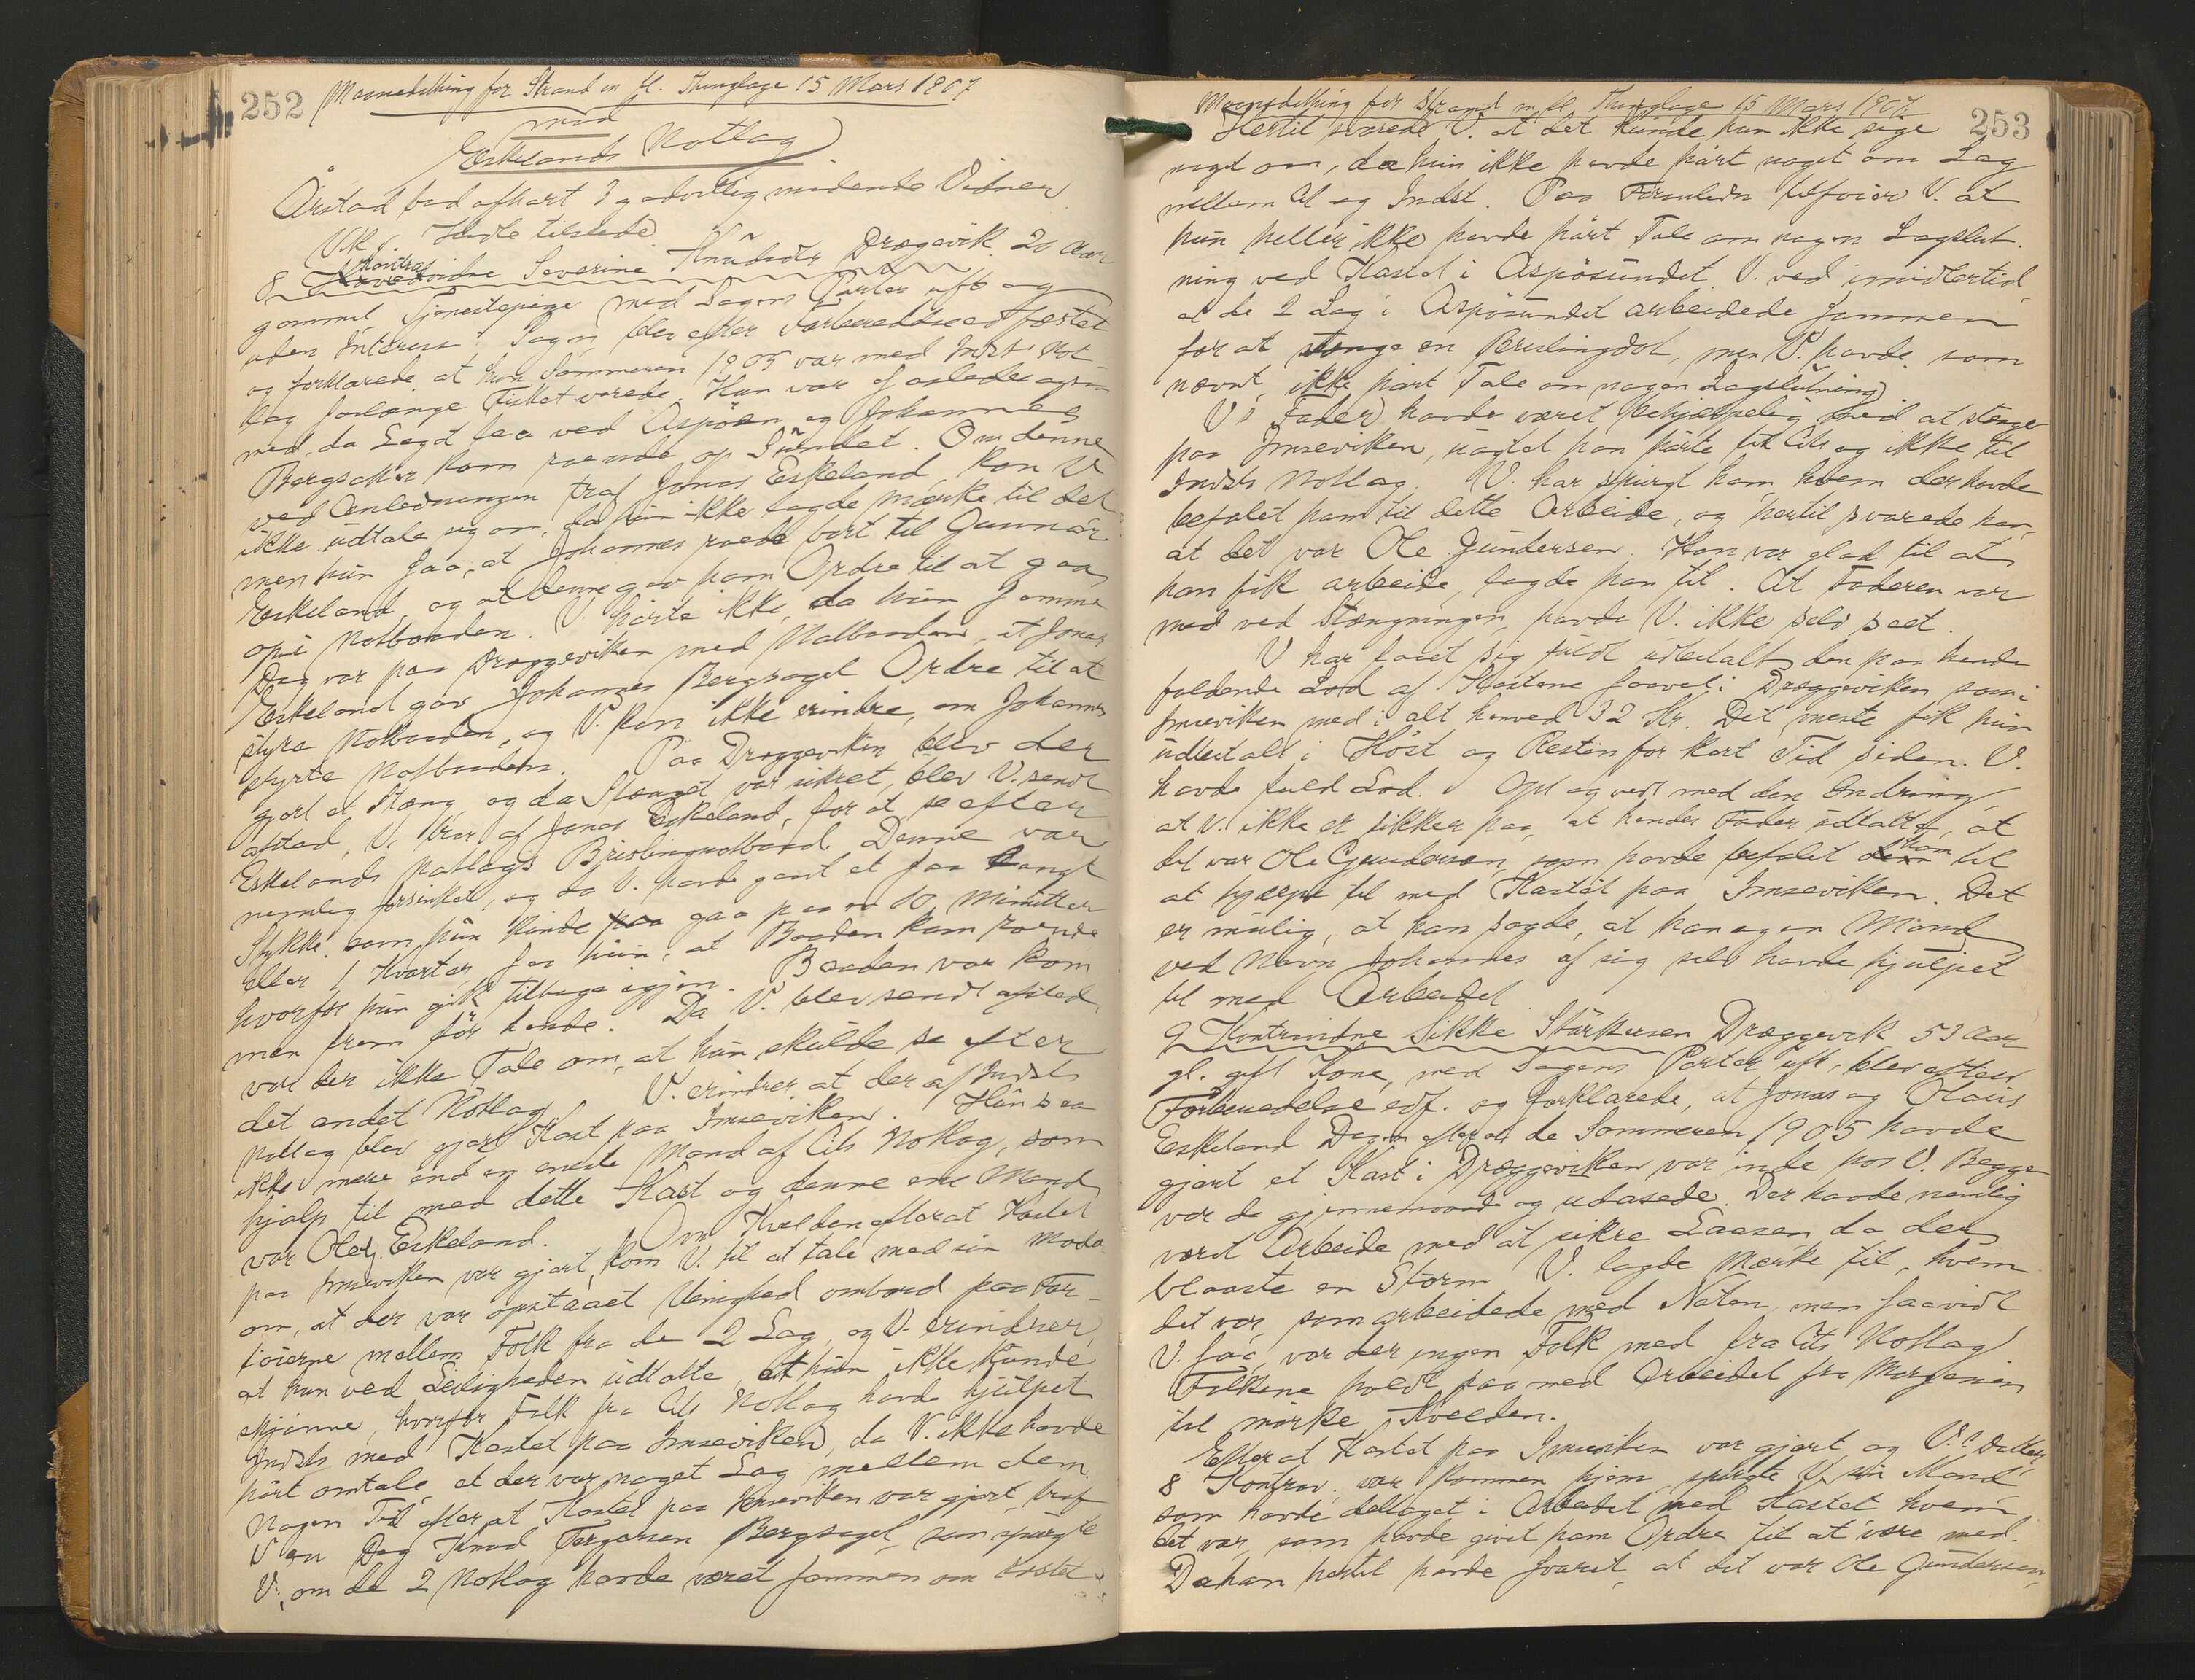 252 Maanedsthing for Strand m. fl. Thinglage 15 Mars 1907
mod
Eskelands Notlag
Årstad bad afhørt 3 godvillig mødende Vidner
Hvile tilstede
8 Kontravidne Severine Knudsdtr Dræggevik 20 Aar
gammel Tjenestepige med Sagens Parter uft og
uden Interesse i Sagen, blev efter Forberedelse edfæstet
og forklarede, at hun Sommeren 1905 var med Indst Not
lag saalænge Fisket varede. Hun var saaledes ogsaa
med, da Laget laa ved Aspøen og Johannes
Bergsaker kom roende op Sundet. Om denne
ved Anledningen traf Jonas Eskeland, kan V
ikke udtale sig om, da hun ikke lagde mærke til det
men hun saa, at Johannes roede bort til Gunnar
Eskeland, og at denne gav ham Ordre til at gaa
op i Notbaaden. V. hørte ikke, da hun samme
Dag var paa Dræggeviken med Notbaaden, at Jonas
Eskeland gav Johannes Bergsagel Ordre til at
styre Notbaaden, og V. kan ikke erindre, om Johannes
styrte Notbaaden. Paa Dræggeviken blev der
gjort et Stæng, og da Stænget var sikret, blev V. sendt
afsted, V. tror af Jonas Eskeland, for at se efter
Eskelands Notlags Brislingnotbaad. Denne var
nemlig forsinket, og da V. havde gaaet et saa langt
Stykke som hun kunde gaa paa 10 Minutter
eller 1 Kvarter, saa hun, at Baaden kom roende
hvorfor hun gik tilbage igjen. Baaden var kom
men frem før hende. Da V. blev sendt afsted,
var der ikke Tale om, at hun skulde se efter
det andet Notlag. V. erindrer, at der af Indsts
Notlag blev gjort Kast paa Imseviken. Hun saa
ikke mere end en eneste Mand af Cits Notlag, som
hjalp til med dette Kast og denne ene Mand
var Ole Eskeland. Om Kvelden efterat Kastet
paa Imseviken var gjort, kom V. til at tale med sin Moder
om, at der var opstaaet Uenighed ombord paa Far-
tøierne mellem Folk fra de 2 Lag, og V. erindrer,
at hun ved Leiligheden udtalte at hun ikke kunde
skjønne, hvorfor Folk fra Cits Notlag havde hjulpet
Indsts med Kastet paa Imseviken, da V. ikke havde
hørt omtale at der var noget Lag mellem dem.
Nogen Tid efter at Kastet paa Imseviken var gjort, traf
V en Dag Knud Torgersen Bergsagel, som spurgte
V., om de 2 Notlag havde været sammen om Kastet.
Maanedsthing for Strand m. fl. Thinglage 15 Mars 1907. 253
Hertil svarede V. at det kunde hun ikke sige
noget om, da hun ikke havde hørt noget om Lag
mellem Cit og Indst. Paa Foranledn tilføier V. at
hun heller ikke havde hørt Tale om nogen Lagslut-
ning ved Kastet i Aspøsundet. V. ved imidlertid
at de 2 Lag i Aspøsundet arbeidede sammen
for at stænge en Brislingdot, men V. havde, som
nævnt, ikke hørt Tale om nogen Lagslutning
V's Fader havde været behjælpelig med at stænge
paa Imseviken, uagtet han hørte til Cits og ikke til
Indsts Notlag. V. har spurgt ham, hvem der havde
befalet ham til dette Arbeide, og hertil svarede han,
at det var Ole Gundersen. Han var glad til at
han fik arbeide, sagde han til. At Faderen var
med ved Stængningen, havde V. ikke selv seet.
V har faaet sig fuldt udbetalt den paa hende
faldende Lod af Kastene saavel i Dræggeviken som i
Imseviken med i alt henved 32 Kr. Det meste fik hun
udbetalt i Høst og Resten for kort Tid siden. V.
havde fuld Lod. Opl og vedt med den Endring,
at V. ikke er sikker paa, at hendes Fader udtalte, at
det var Ole Gundersen, som havde befalet ham til
at hjælpe til med Kastet paa Imseviken. Det
er mulig, at han sagde, at han og en Mand
ved Navn Johannes af sig selv havde hjulpet
til med Arbeidet
9 Kontravidne Sikke Størkersen Dræggevik 53 Aar
gl. gift Kone, med Sagens Parter uft, blev efter
Forberedelse edf. og forklarede, at Jonas og Olaus
Eskeland Dagen efter at de Sommeren 1905 havde
gjort et Kast i Dræggeviken var inde hos V. Begge
var de gjennemvaade og udasede. Der havde nemlig
været Arbeide med at sikre Laasen da der
blaaste en Storm. V. lagde Mærke til, hvem
det var, som arbeidede med Noten, men saavidt
V. saa, var der ingen Folk med fra Cits Notlag
Folkene holdt paa med Arbeidet fra Morgenen
til mørke Kvelden.
Efter at Kastet paa Imseviken var gjort og V.s Datter,
8 Kontrav. var kommen hjem, spurgte V. sin Mand
som havde deltaget i Arbeidet med Kastet hvem
det var, som havde givet ham Ordre til at være med.
Da han hertil havde svaret, at det var Ole Gundersen,